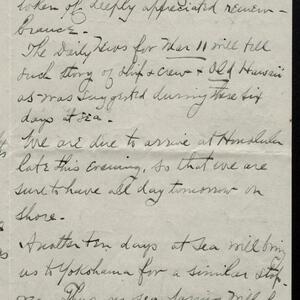 token of deeply appreciated remem-
brance.
The Daily News for Mar 11 will tell
such story of ship & crew & Old Hawaii
as was suggested during these six
days at sea.
We are due to arrive at Honolulu
late this evening, so that we are
sure to have all day tomorrow on
shore.
Another ten days at sea will bring
us to Yokohama for a similar stop-